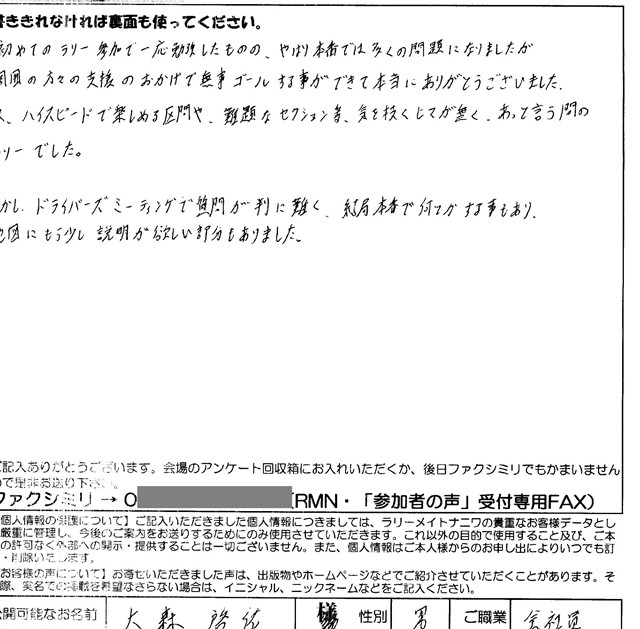 書ききれなければ裏面も使ってください。
初めてのラリー参加で一応勉強したものの、やはり本番では多くの問題になりましたが
周囲の方々の支援のおかげで無事ゴールする事ができて本当にありがとうございました。
ハイスピードで楽しめる区間や、難題なセクション等、気を抜くヒマが無く、あっと言う間の
ラリーでした。
しかし、ドライバーズミーティングで質問が判に難く、結局本番で何てかする事もあり、
地図にもう少し説明が欲しい部分もありました。
ご記入ありがとうございます。会場のアンケート回収箱にお入れいただくか、後日ファクシミリでもかまいません
ので是非お送り下さい。
ファクシミリ → 0 (RMN・「参加者の声」受付専用FAX)
個人情報の保護について】ご記入いただきました個人情報につきましては、ラリーメイトナニワの貴重なお客様データとし
厳重に管理し、今後のご案内をお送りするためにのみ使用させていただきます。これ以外の目的で使用すること及び、ご本
の許可なく外部への開示・提供することは一切ございません。また、個人情報はご本人様からのお申し出によりいつでも訂
・削除いたします。
お客様の声について】お寄せいただきました声は、出版物やホームページなどでご紹介させていただくことがあります。そ
際、実名での掲載を希望なさらない場合は、イニシャル、ニックネームなどをご記入ください。
公開可能なお名前 大森 啓佑 様 性別 男 ご職業 会社員